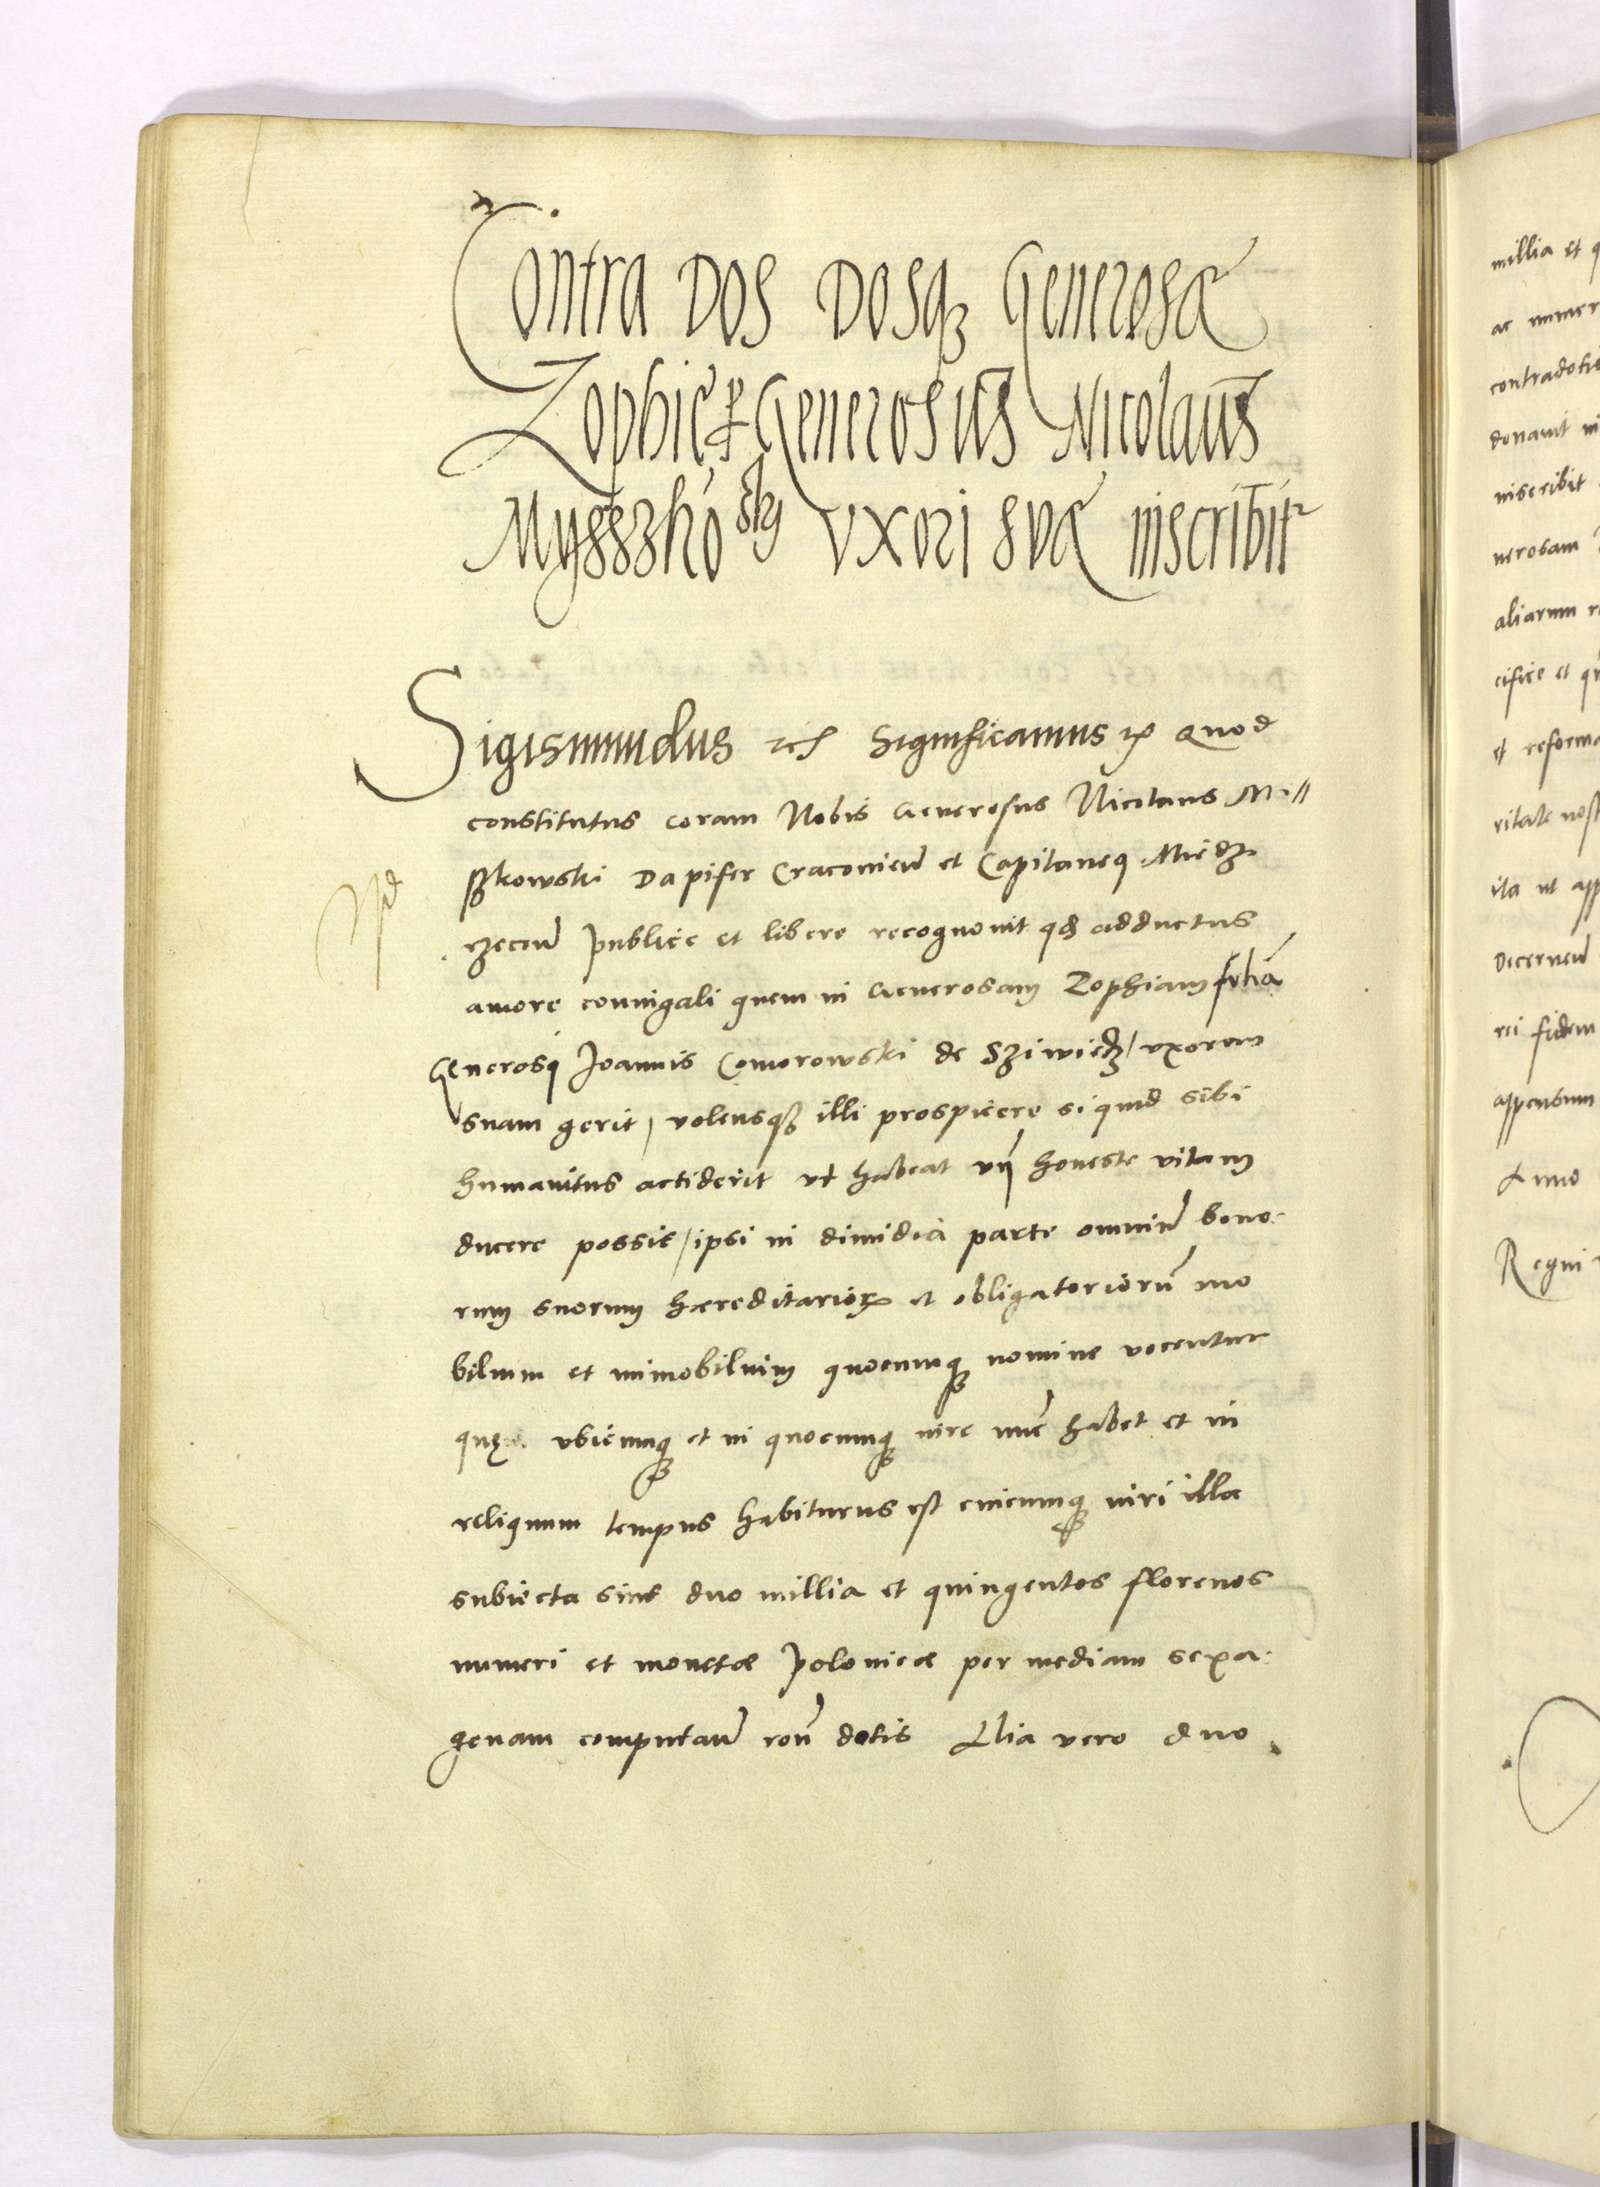 Contra Dos Dosqȝ Generosæ
Zophiæ Generosus Nicolaus
Mysszkowskij vxori svæ inscribit
Sigismundus etc Significamus etc Quod
constitutus coram Nobis Generosus Nicolaus Mi//
szkowski Dapifer Cracovien et Capitaneus Miedz
rzecen publice et libere recognovit qd adductus
amore coniugali quem in Generosam Zophiam filiā
Generosi Joannis Comorowski de Sziwietz / vxorem
suam gerit / volensqȝ illi prospicere si quid sibi
humanitus acciderit vt habeat vn honeste vitam
ducere possit / ipsi in dimidia parte omniū bono
rum suorum hæreditarioꝝ et obligatoriorū mo
bilium et immobilium quocunqȝ nomine vocentur
quę vbicunqȝ et in quocunqȝ iure nūc habet et in
reliquum tempus habiturus est cuicunqȝ iuri illa
subiecta sint duo millia et quingentos florenos
numeri et monetæ Polonicæ per mediam sexa
genam computan roñ dotis Alia vero duo
millia et q
ac numer
contradotis
donavit in
inscribit
nerosam
aliarum r
cifice et q
et reforma
ritate nost
ita ut app
Decernen
rei fidem
appensum
Anno
Regni